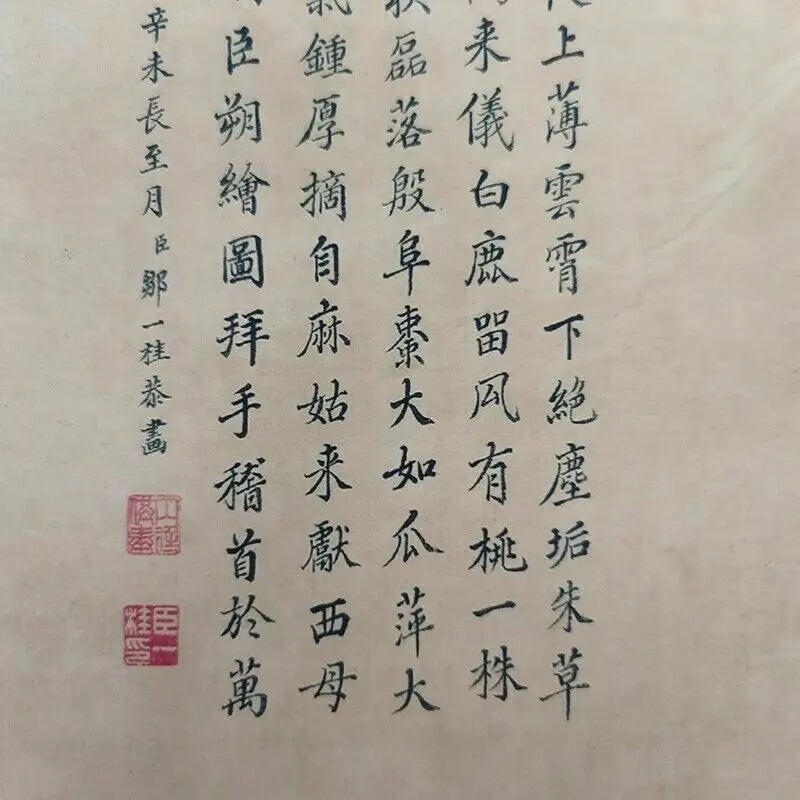 上薄雲霄下絶塵垢朱草
来儀白鹿畱風有桃一株
磊落殷阜棗大如瓜萍大
鍾厚摘自麻姑来獻西母
臣朔繪圖拜手稽首於萬
辛未長至月臣鄒一桂恭畫
臣一桂印